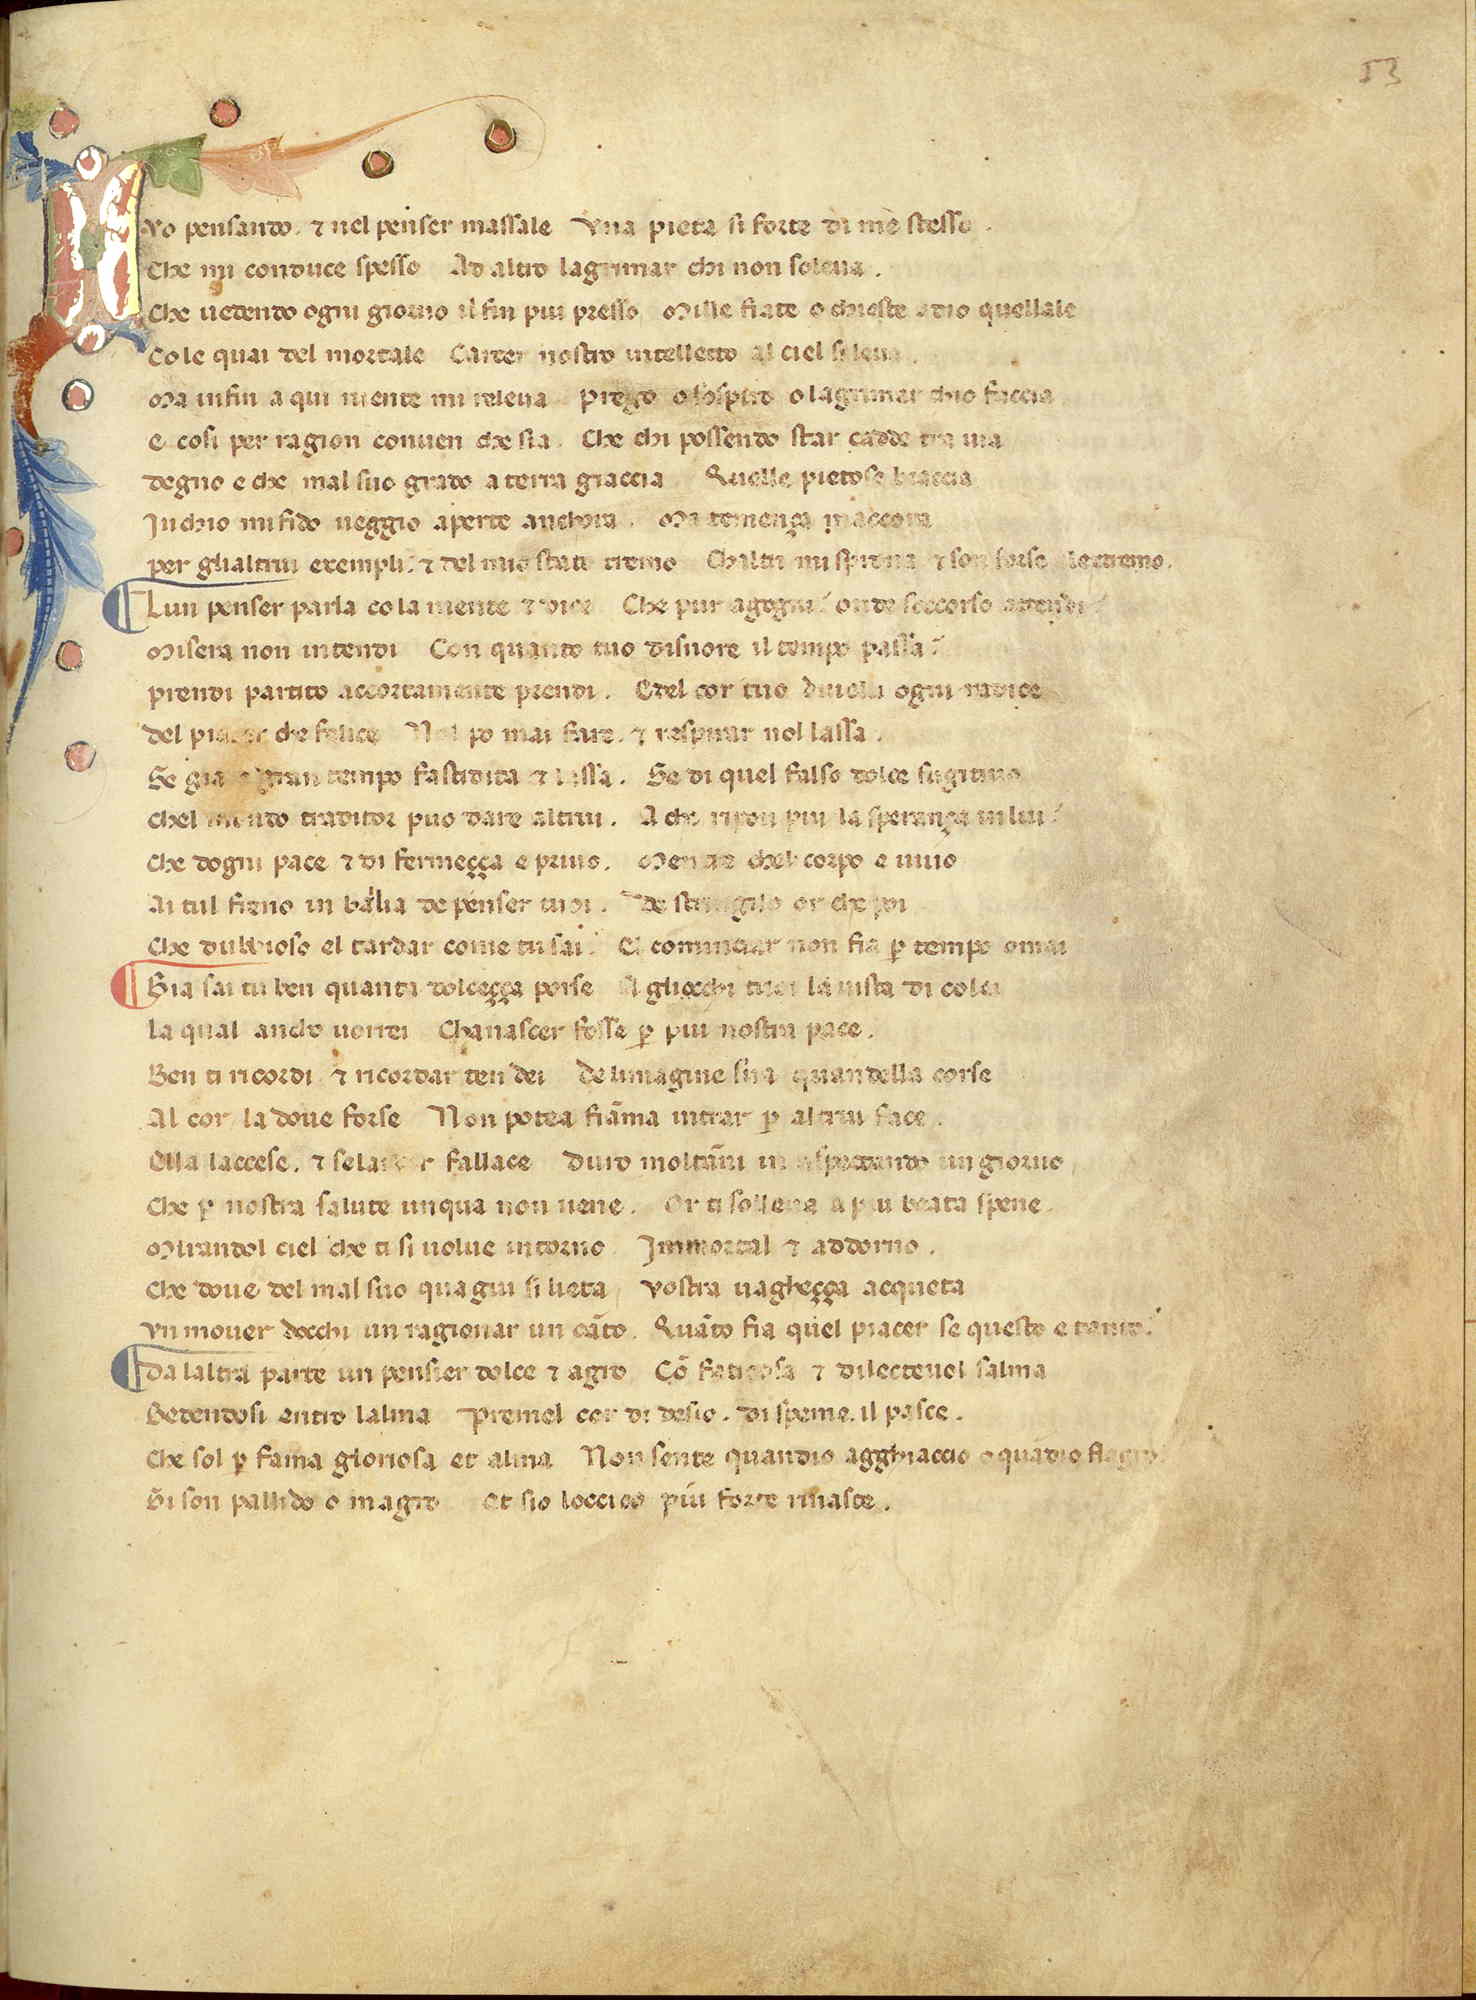 53
I vo pensando. ⁊ nel penser massale Vna pieta si forte di me stesso.
Che mi conduce spesso Ad altro lagrimar chi non soleua.
Che uedendo ogni giorno il fin piu presso Mille fiate o chieste adio quellale
Co le quai del mortale Carcer nostro intelletto al ciel si leua.
Ma infin a qui niente mi releua prego o sospiro o lagrimar chio faccia
e cosi per ragion conuen che sia. Che chi possendo star cadde tra uia
degno e che mal suo grado a terra giaccia Quelle pietose braccia
Inchio mi fido ueggio aperte anchora. Ma temença maccora
per glialtrui exempli. ⁊ del mio stato tremo Chaltri mi sprona ⁊ son forse alextremo.
Lun penser parla co la mente ⁊ dice Che pur agogni? onde soccorso attendi?
Misera non intendi Con quanto tuo disnore il tempo passa?
prendi partito accortamente prendi. Edel cor tuo diuelli ogni radice
del piacer che felice Nol po mai fare. ⁊ respirar nol lassa.
Se gia e gran tempo fastidita ⁊ lassa. Se di quel falso dolce fugitiuo
Chel mondo traditor puo dare altrui. A che ripon piu la sperança in lui?
Che dogni pace ⁊ di fermeçça e priuo. Mentre chel corpo e uiuo
Ai tul freno in balia de penser tuoi. De stringilo or che poi
Che dubbioso el tardar come tu sai. El cominciar non fia p̲ tempo omai
Gia sai tu ben quanta dolceçça porse A gliocchi tuoi la uista di colei
la qual ancho uorrei Chanascer fosse p̲ piu nostra pace.
Ben ti ricordi ⁊ ricordar ten dei de limagine sua quandella corse
Al cor la doue forse Non potea fiãma intrar p̲ altrui face.
Ella laccese. ⁊ se lardor fallace duro moltãni in aspectando un giorno
Che p̲ nostra salute unqua non uene. Or ti solleua a piu beata spene.
Mirandol ciel che ti si uolue intorno Immortal ⁊ addorno.
Che doue del mal suo qua giu si lieta Vostra uagheçça acqueta
Vn mouer docchi un ragionar un cãto. Quãto fia quel piacer se questo e tanto?
Da laltra parte un pensier dolce ⁊ agro Cõ faticosa ⁊ dilecteuol salma
Sedendosi entro lalma Premel cor di desio. di speme. il pasce.
Che sol p̲ fama gloriosa et alma Non sente quandio agghiaccio o quãdio flagro
Si son pallido o magro Et sio loccido piu forte rinasce.